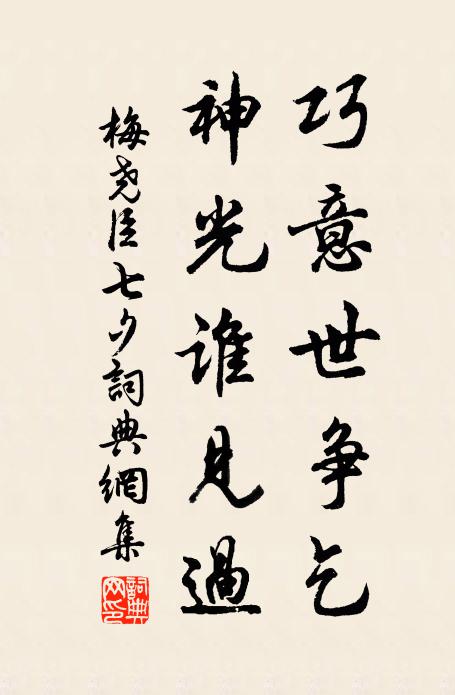 巧意世争乞
神光谁見過
梅尧臣七夕詞典網集
詞典网印